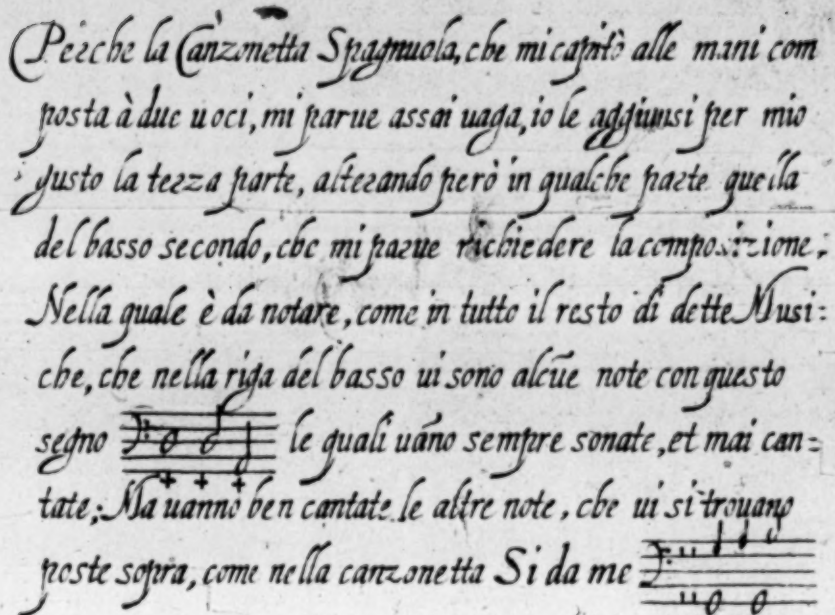 Perche la Canzonetta Spagnuola, che mi capitò alle mani com
posta à due uoci, mi parue assai uaga, io le aggiunsi per mio
gusto la terza parte, alterando però in qualche parte quella
del basso secondo, che mi parue richiedere la composizione;
Nella quale è da notare, come in tutto il resto di dette Musi:
che, che nella riga del basso ui sono alcūe note con questo
segno le quali uāno sempre sonate, et mai can=
tate; Ma uanno ben cantate le altre note, che ui si trouano
poste sopra, come nella canzonetta Si da me